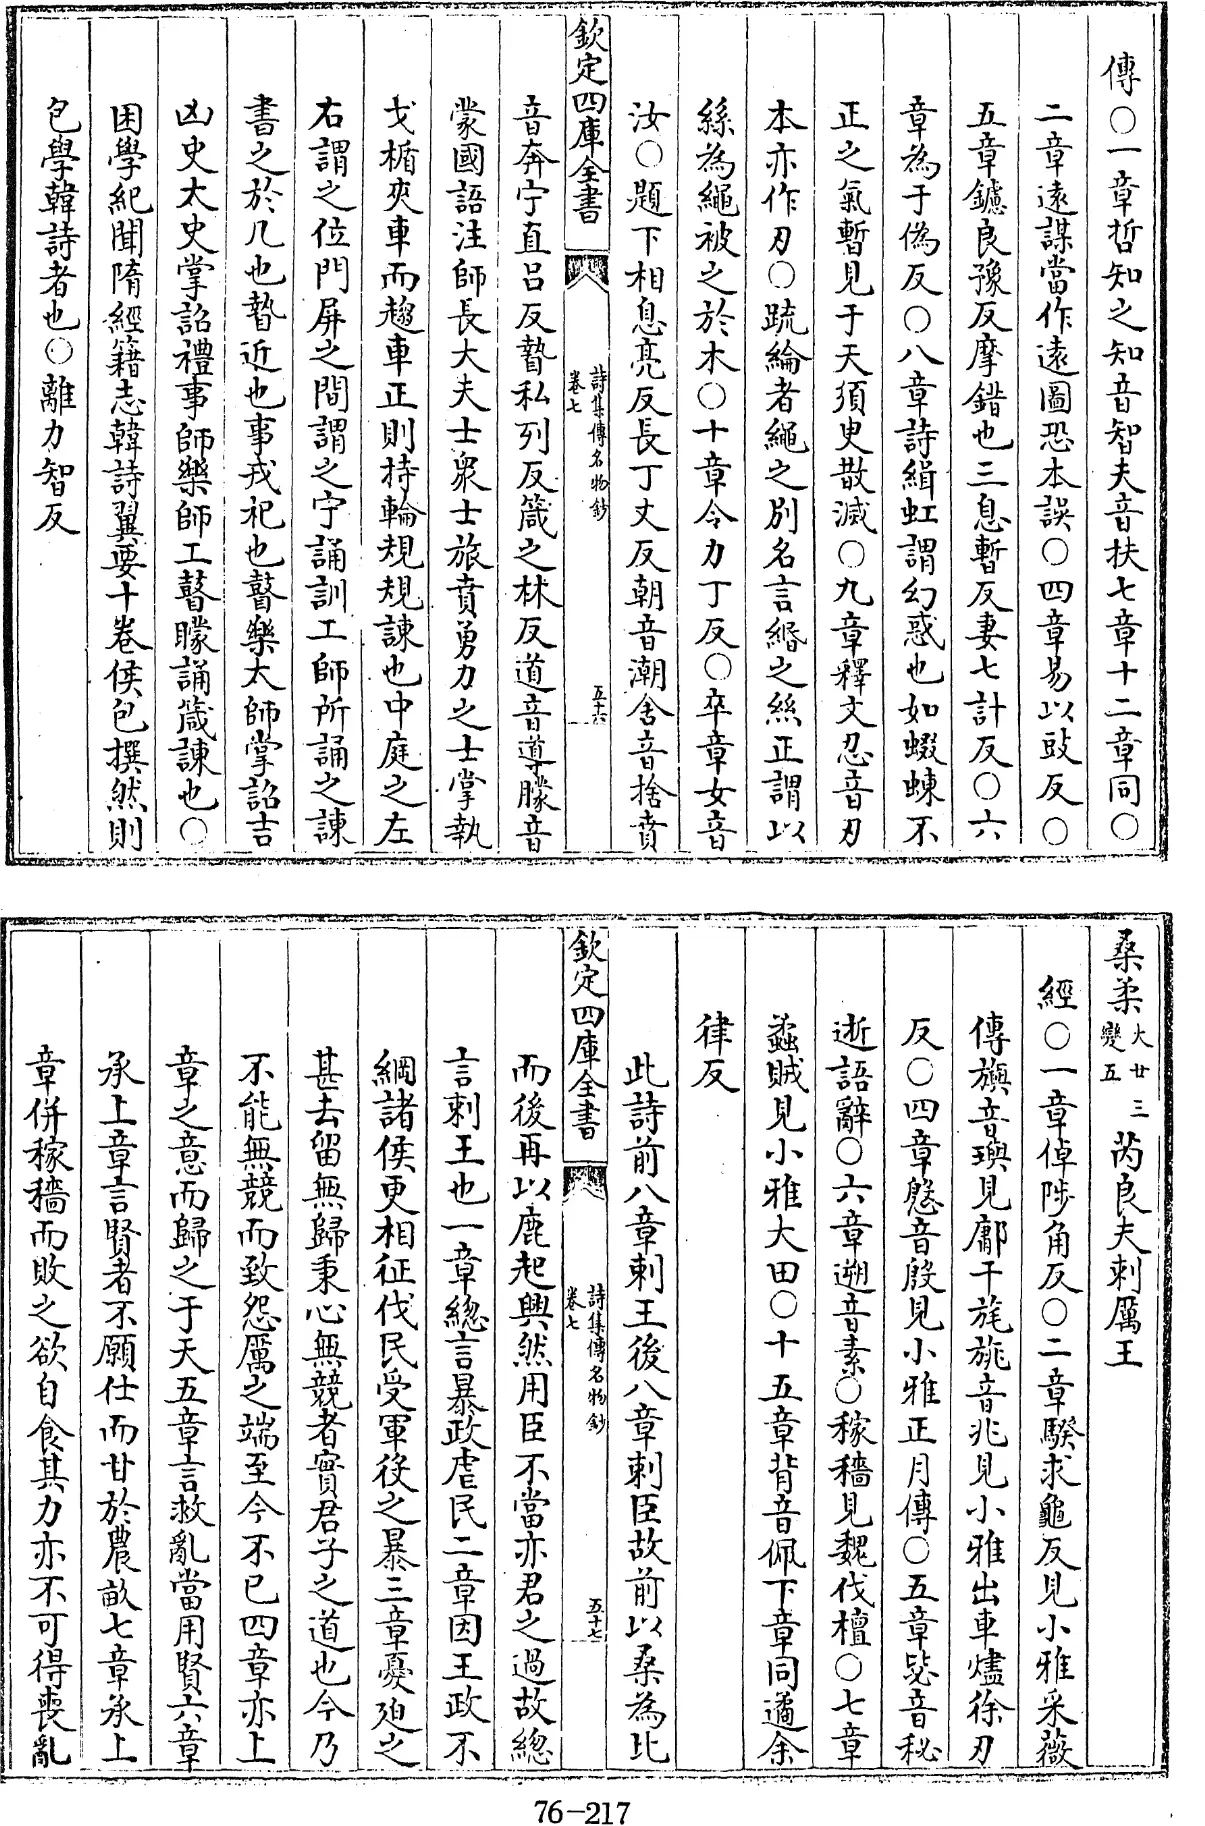 傳〇一章哲知之知音智夫音扶七章十二章同〇
二章遠謀當作遠圖恐本誤〇四章易以豉反〇
五章鑢良豫反摩錯也三息暫反妻七計反〇六
章為于偽反〇八章詩緝虹謂幻惑也如蝃蝀不
正之氣暫見于天須臾散滅〇九章釋文忍音刃
本亦作刃〇疏綸者繩之別名言緡之絲正謂以
絲為繩被之於木〇十章令力丁反〇卒章女音
汝〇題下相息亮反長丁丈反朝音潮舍音捨賁
欽定四庫全書
詩集傳名物鈔
卷七
五十六
音奔宁直呂反暬私列反箴之林反道音導矇音
蒙國語注師長大夫士衆士旅賁勇力之士掌執
戈楯夾車而趨車正則持輪規規諫也中庭之左
右謂之位門屏之間謂之宁誦訓工師所誦之諫
書之於几也暬近也事戎祀也瞽樂太師掌詔吉
凶史太史掌詔禮事師樂師工瞽矇誦箴諫也〇
困學紀聞隋經籍志韓詩翼要十卷侯包撰然則
包學韓詩者也〇離力智反
桑柔大廿三變五芮良夫刺厲王
經〇一章倬陟角反〇二章騤求龜反見小雅采薇
傳旟音璵見鄘干旄旐音兆見小雅出車燼徐刃
反〇四章慇音殷見小雅正月傳〇五章毖音秘
逝語辭〇六章遡音素〇稼穡見魏伐檀〇七章
蟊賊見小雅大田〇十五章背音佩下章同遹余
律反
此詩前八章刺王後八章刺臣故前以桑為比
欽定四庫全書
詩集傳名物鈔
卷七
五十七
而後再以鹿起興然用臣不當亦君之過故總
言刺王也一章總言暴政虐民二章因王政不
綱諸侯更相征伐民受軍役之暴三章憂廹之
甚去留無歸秉心無競者實君子之道也今乃
不能無競而致怨厲之端至今不已四章亦上
章之意而歸之于天五章言救亂當用賢六章
承上章言賢者不願仕而甘於農畝七章承上
章併稼穡而敗之欲自食其力亦不可得喪亂
76-217